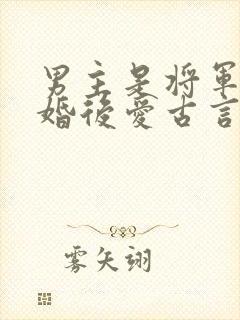 男主是將軍
婚後愛古言
雾矢翊